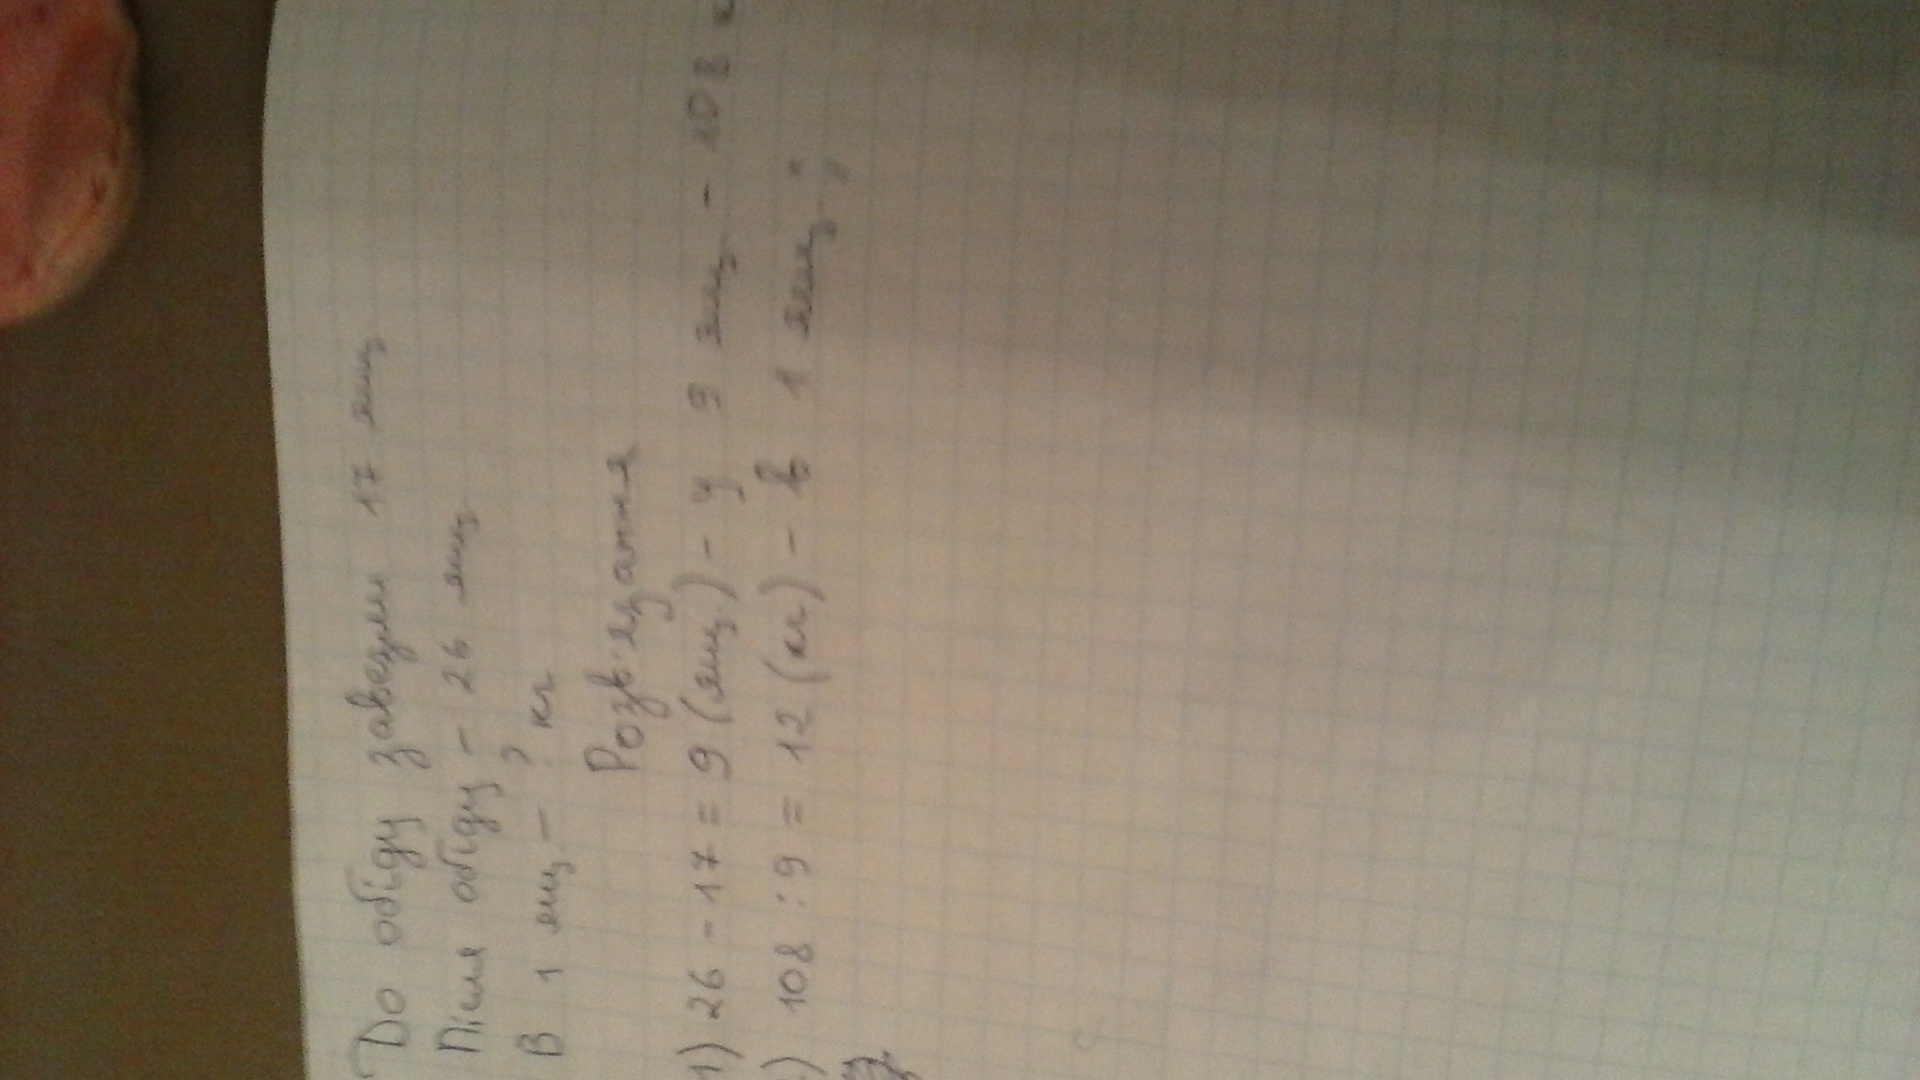 До обіду завезли 17 ящ
Після обіду - 26 ящ.
В 1 ящ - ? кг
Розв'язання
1) 26 - 17 = 9 (ящ) - у 9 ящ - 108 к
) 108 : 9 = 12 (кг) - в 1 ящ.;